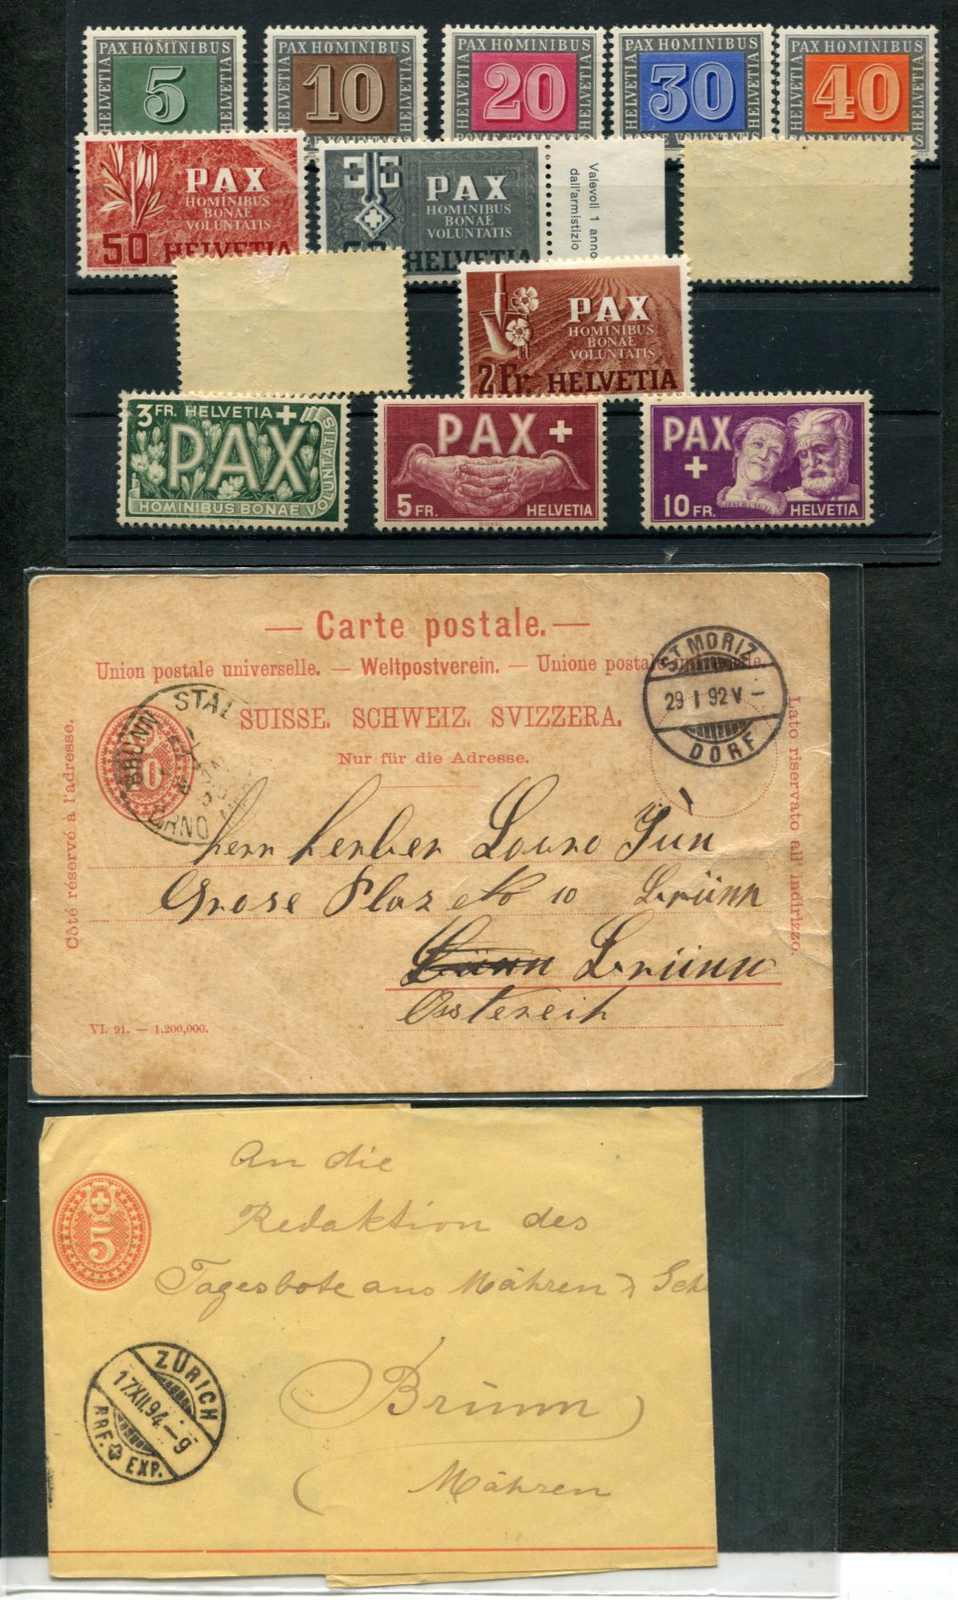 PAX HOMINIBUS
HELVETIA 5 HELVETIA
PAX HOMINIBUS
HELVETIA 10 HELVETIA
PAX HOMINIBUS
HELVETIA 20 HELVETIA
PAX HOMINIBUS
HELVETIA 30 HELVETIA
PAX HOMINIBUS
HELVETIA 40 HELVETIA
PAX
HOMINIBUS
BONAE
VOLUNTATIS
50 HELVETIA
PAX
HOMINIBUS
BONAE
VOLUNTATIS
HELVETIA
Valevoli 1 anno
dall'armistizio
PAX
HOMINIBUS
BONAE
VOLUNTATIS
2 Fr. HELVETIA
3 FR. HELVETIA +
PAX
HOMINIBUS BONAE VOLUNTATIS
PAX +
5 FR. HELVETIA
PAX
+
10 FR. HELVETIA
— Carte postale. —
Union postale universelle. — Weltpostverein. — Unione postale
SUISSE. SCHWEIZ. SVIZZERA.
Nur für die Adresse.
ST. MORIZ
29 I 92 V –
DORF
BRÜNN STA
BRNO
10
Côté réservé à l'adresse.
Lato riservato all' indirizzo.
Herr Herber Louro Jun
Grose Plaz No 10 Brünn
Brünn
Ossterreih
VI. 91. — 1.200,000.
5
An die
Redaktion des
Tagesbote aus Mähren & Sch
Brünn
Mähren
ZÜRICH
17.XII.94.–9
BRF. EXP.